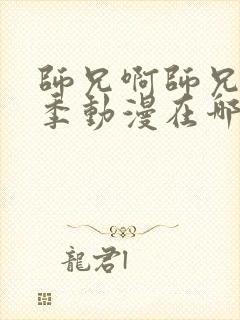 師兄啊師兄
季動漫在哪
龍君1